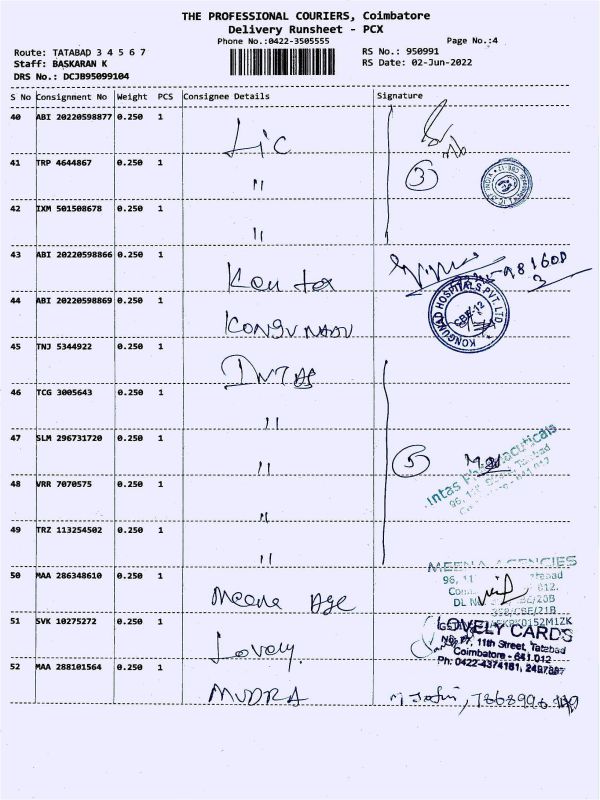 THE PROFESSIONAL COURIERS, Coimbatore
Delivery Runsheet - PCX
Phone No.:0422-3505555
Page No.:4
Route: TATABAD 3 4 5 6 7
RS No.: 950991
Staff: BASKARAN K
RS Date: 02-Jun-2022
DRS No.: DCJB95099104
S No Consignment No Weight PCS Consignee Details Signature
40 ABI 20220598877 0.250 1 Lic
41 TRP 4644867 0.250 1 " 3
42 IXM 501508678 0.250 1 "
43 ABI 20220598866 0.250 1
44 ABI 20220598869 0.250 1 KONGUNADU
KONGUNAD HOSPITALS PVT. LTD.
CBE-12
45 TNJ 5344922 0.250 1 INTAS
46 TCG 3005643 0.250 1 "
47 SLM 296731720 0.250 1 " 5
Intas Pharmaceuticals
48 VRR 7070575 0.250 1 "
49 TRZ 113254502 0.250 1 "
MEENA AGENCIES
50 MAA 286348610 0.250 1 Meena Age
51 SVK 10275272 0.250 1 Lovely.
LOVELY CARDS
No. 77, 11th Street, Tatabad
Coimbatore - 641 012
Ph: 0422-4374181, 2497887
52 MAA 288101564 0.250 1 MUDRA